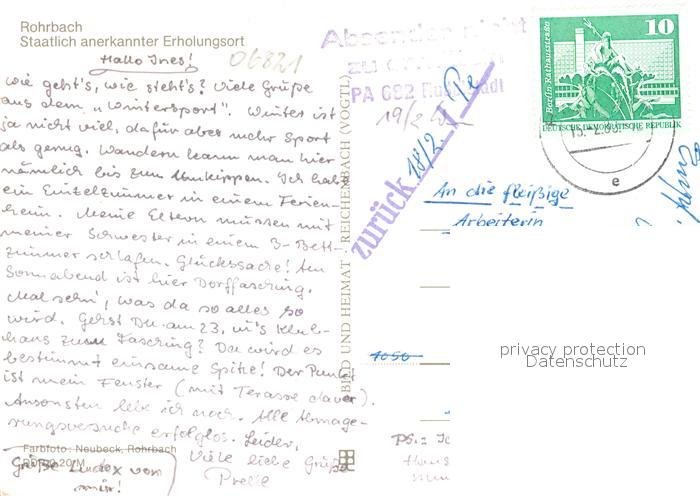 Rohrbach
Staatlich anerkannter Erholungsort
06821
Hallo Ines!
Wie geht's, wie steht's? Viele Grüße
aus dem "Wintersport". Winter ist
ja nicht viel, dafür aber mehr Sport
als genug. Wandern kann man hier
nämlich bis zum Umkippen. Ich hab
ein Einzelzimmer in einem Ferien-
heim. Meine Eltern müssen mit
meiner Schwester in einem 3-Bett-
zimmer schlafen. Glückssache! Am
Sonnabend ist hier Dorffasching.
Mal seh'n, was da so alles so
wird. Gehst Du am 23. in's Klub-
haus zum Fasching? Da wird es
bestimmt einsame Spitze! Der Punkt
ist mein Fenster (mit Terasse davor).
Ansonsten lebe ich noch. Alle Abmage-
rungsversuche erfolglos. Leider.
Viele liebe Grüße
Grüße von
mir!
Farbfoto: Neubeck, Rohrbach
BILD UND HEIMAT REICHENBACH (VOGTL)
Absender nicht
zu
PA 682
19/2
zurück
18/2.
10
Berlin, Rathausstraße
DEUTSCHE DEMOKRATISCHE REPUBLIK
e
An die fleißige
Arbeiterin
1050
PS.:
privacy protection
Datenschutz